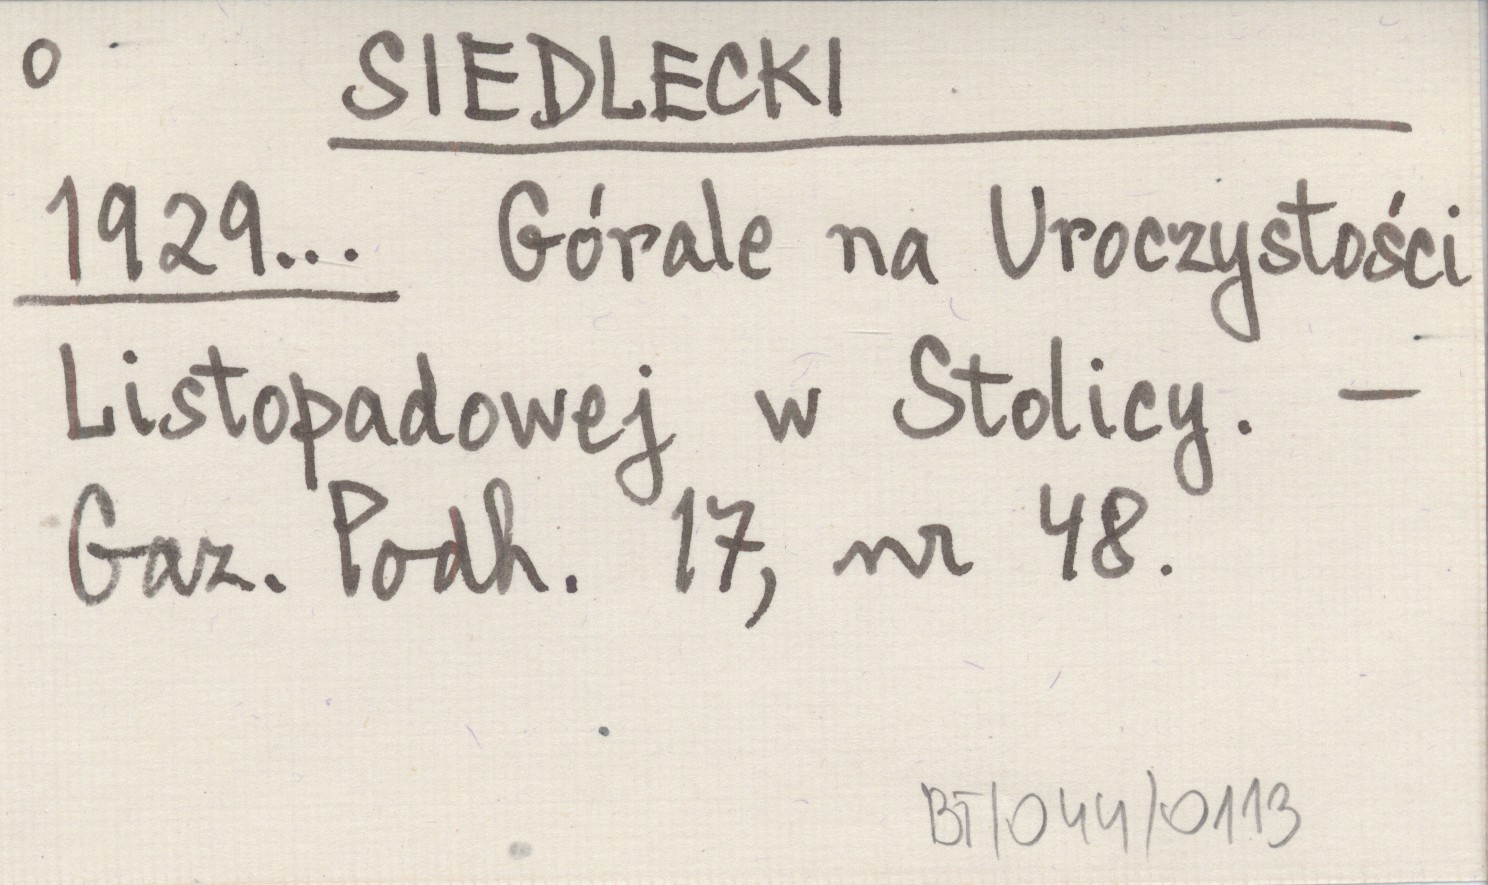 o SIEDLECKI
1929... Górale na Uroczystości
Listopadowej w Stolicy. –
Gaz. Podh. 17, nr 48.
BT/044/0113